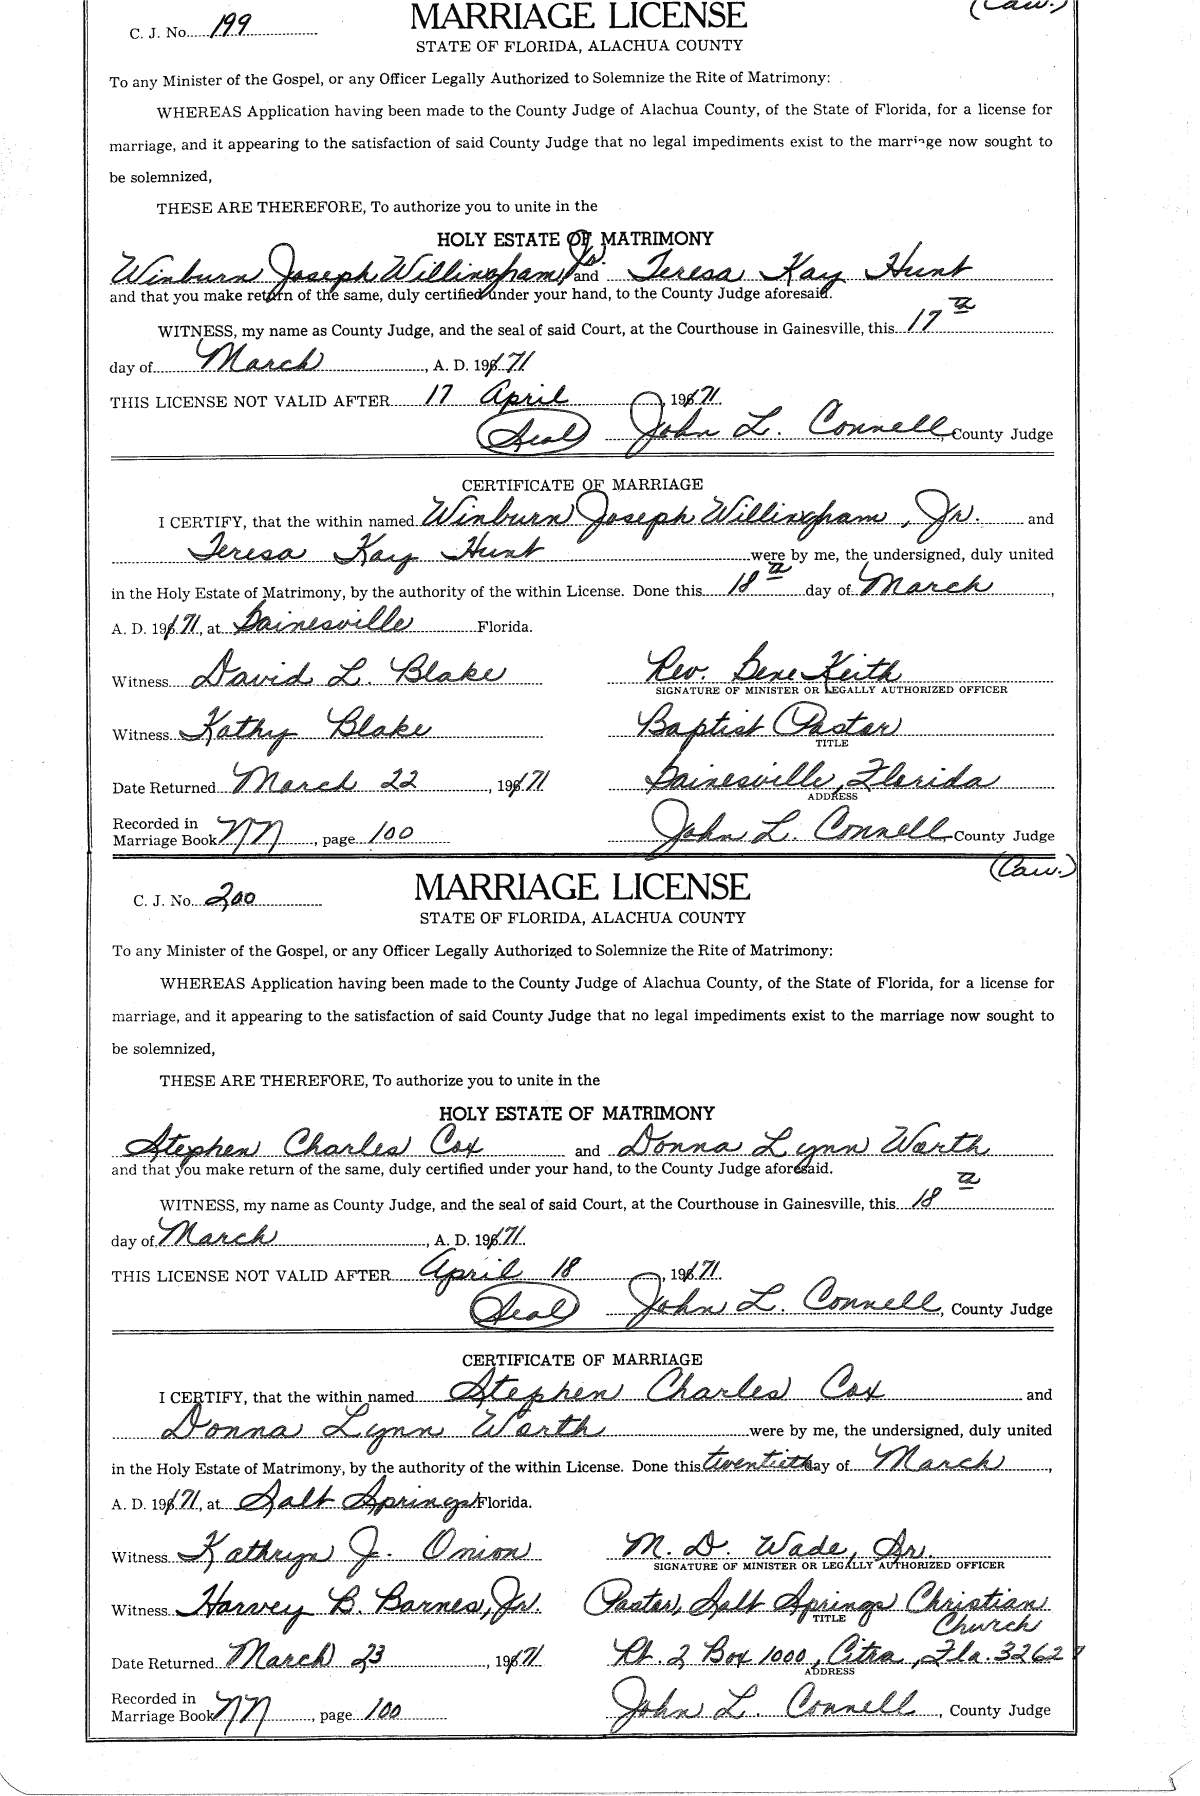 (Caw.)
C. J. No. 199 MARRIAGE LICENSE
STATE OF FLORIDA, ALACHUA COUNTY
To any Minister of the Gospel, or any Officer Legally Authorized to Solemnize the Rite of Matrimony:
WHEREAS Application having been made to the County Judge of Alachua County, of the State of Florida, for a license for
marriage, and it appearing to the satisfaction of said County Judge that no legal impediments exist to the marriage now sought to
be solemnized,
THESE ARE THEREFORE, To authorize you to unite in the
HOLY ESTATE OF MATRIMONY
Winburn Joseph Willingham, Jr. and Teresa Kay Hunt
and that you make return of the same, duly certified under your hand, to the County Judge aforesaid.
WITNESS, my name as County Judge, and the seal of said Court, at the Courthouse in Gainesville, this 17th
day of March, A. D. 1971
THIS LICENSE NOT VALID AFTER 17 April 1971
(Seal) John L. Connell, County Judge
CERTIFICATE OF MARRIAGE
I CERTIFY, that the within named Winburn Joseph Willingham, Jr. and
Teresa Kay Hunt were by me, the undersigned, duly united
in the Holy Estate of Matrimony, by the authority of the within License. Done this 18th day of March,
A. D. 1971, at Gainesville Florida.
Witness David L. Blake Rev. Gene Keith
SIGNATURE OF MINISTER OR LEGALLY AUTHORIZED OFFICER
Witness Kathy Blake Baptist Pastor
TITLE
Date Returned March 22, 1971 Gainesville, Florida
ADDRESS
Recorded in
Marriage Book NN, page 100 John L. Connell, County Judge
(Caw.)
C. J. No. 200 MARRIAGE LICENSE
STATE OF FLORIDA, ALACHUA COUNTY
To any Minister of the Gospel, or any Officer Legally Authorized to Solemnize the Rite of Matrimony:
WHEREAS Application having been made to the County Judge of Alachua County, of the State of Florida, for a license for
marriage, and it appearing to the satisfaction of said County Judge that no legal impediments exist to the marriage now sought to
be solemnized,
THESE ARE THEREFORE, To authorize you to unite in the
HOLY ESTATE OF MATRIMONY
Stephen Charles Cox and Donna Lynn Worth
and that you make return of the same, duly certified under your hand, to the County Judge aforesaid.
WITNESS, my name as County Judge, and the seal of said Court, at the Courthouse in Gainesville, this 18th
day of March, A. D. 1971.
THIS LICENSE NOT VALID AFTER April 18, 1971
(Seal) John L. Connell, County Judge
CERTIFICATE OF MARRIAGE
I CERTIFY, that the within named Stephen Charles Cox and
Donna Lynn Worth were by me, the undersigned, duly united
in the Holy Estate of Matrimony, by the authority of the within License. Done this twentieth day of March,
A. D. 1971, at Salt Springs Florida.
Witness Kathryn J. Onion M. D. Wade, Sr.
SIGNATURE OF MINISTER OR LEGALLY AUTHORIZED OFFICER
Witness Harvey B. Barnes, Jr. Pastor, Salt Springs Christian
TITLE Church
Date Returned March 23, 1971 Rt. 2 Box 1000, Citra, Fla. 32627
ADDRESS
Recorded in
Marriage Book NN, page 100 John L. Connell, County Judge